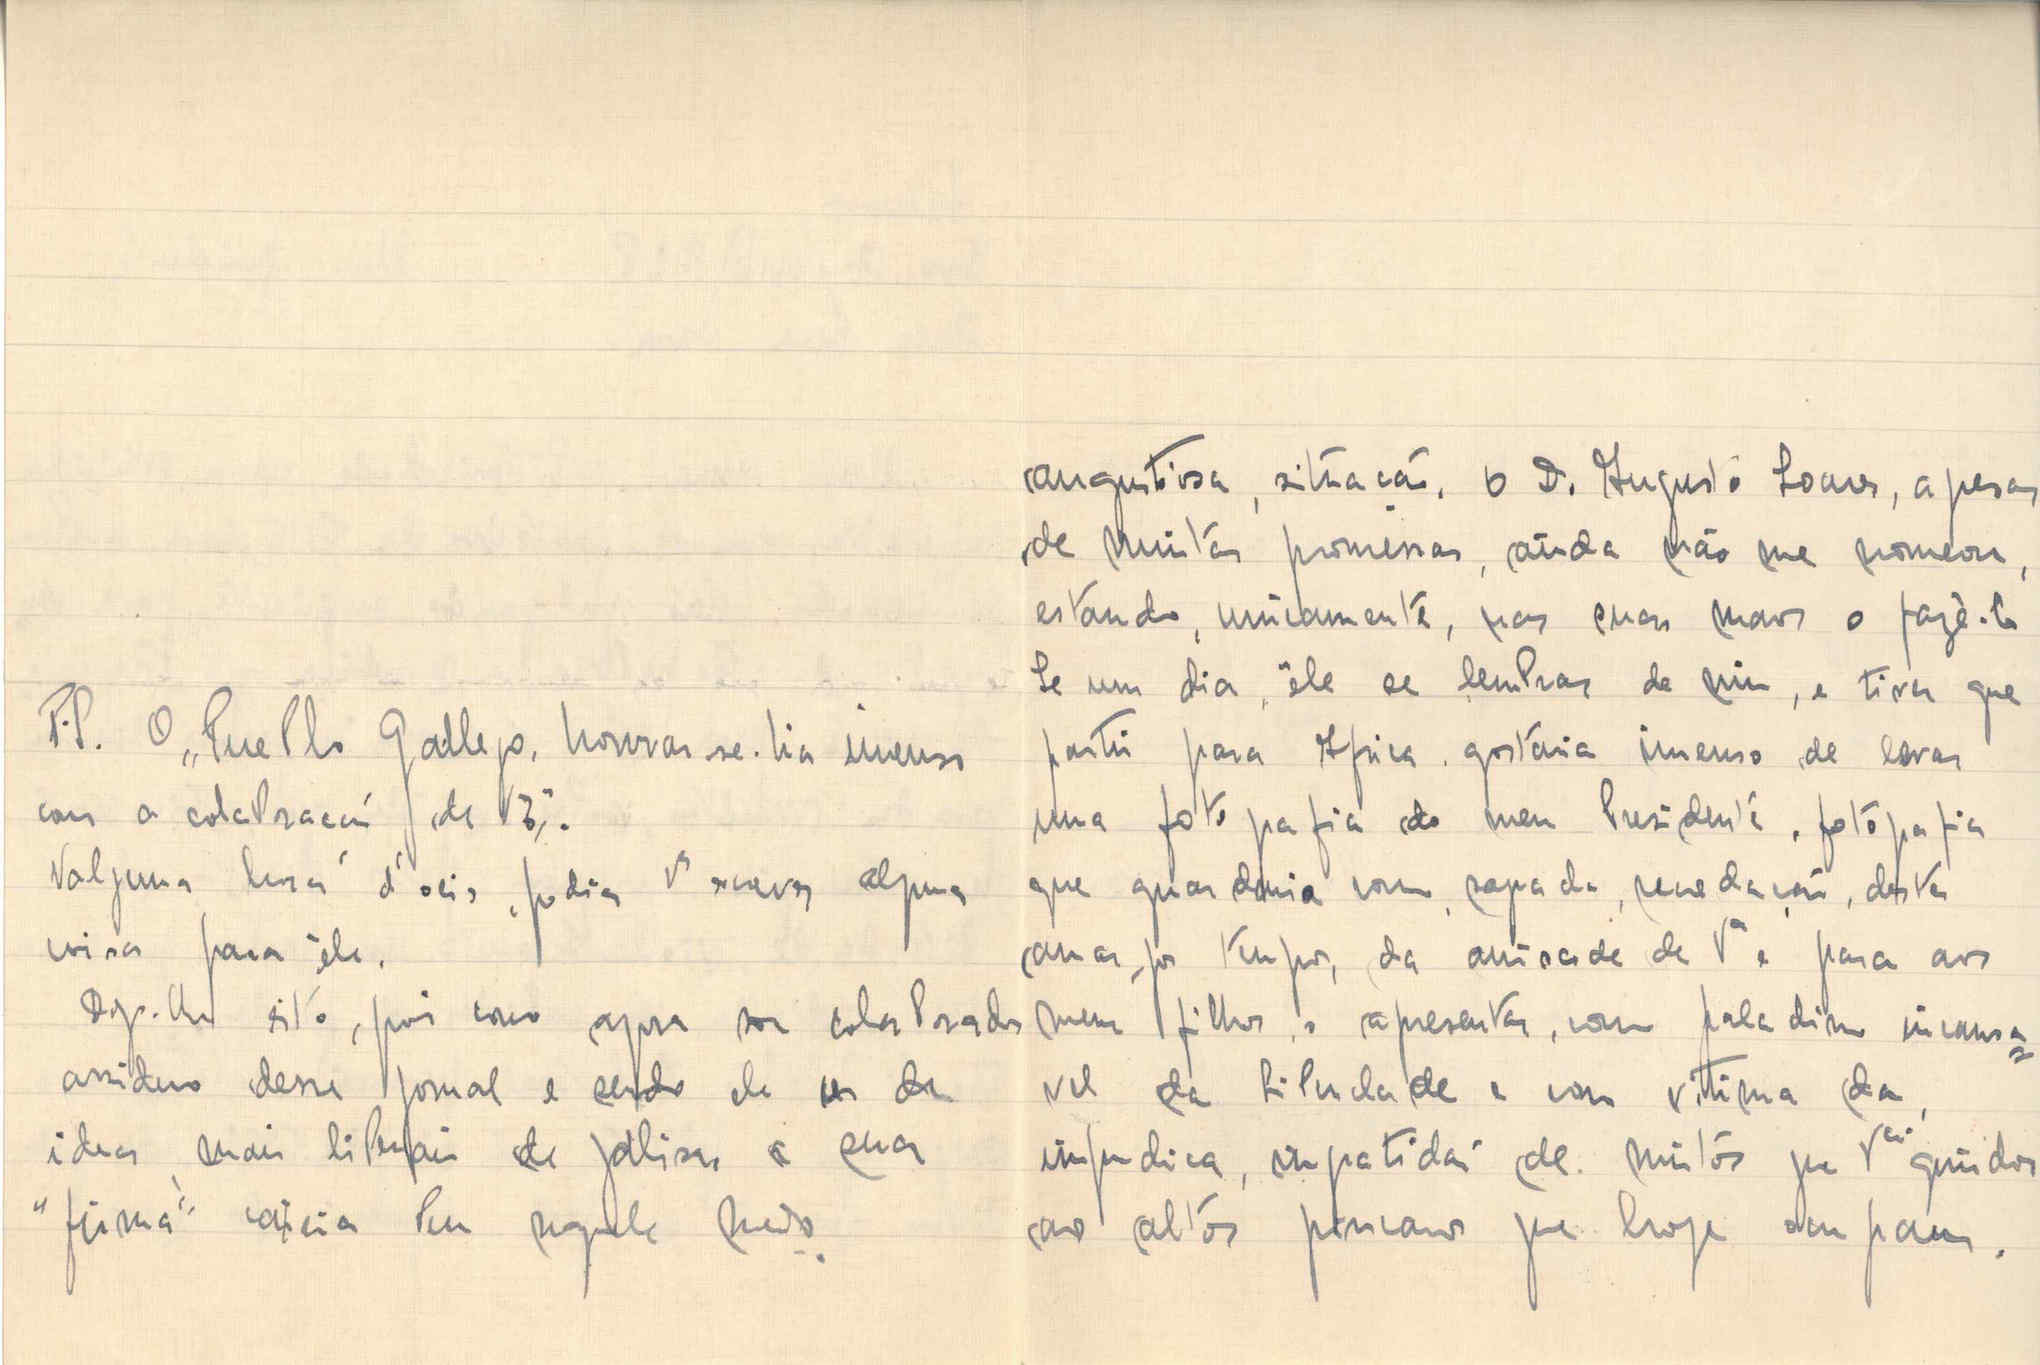 P.S. O "Pueblo Gallego, honrar-se-hia imenso
com a colaboração de V.
N'alguma hora d'ocio, podia Vª escrever alguma
coisa para êle.
isto, pois como agora sou colaborador
assiduo desse jornal e sendo ele um de
ideas mais liberais de a sua
"firma" cairia bem naquele meio.
angustiosa, situação. O D. Augusto Soares, apesar
de muitas promessas, ainda não me nomeou,
estando, unicamente, nas suas mãos o fazê-lo
Se um dia, êle se lembrar de mim, e tiver que
partir para Africa. gostaria imenso de levar
uma fotografia do meu Presidente. fotografia
que guardaria como, sagrada, recordação, destes
amargos tempos, da amisade de Vª e para aos
meus filhos, o apresentar, como paladino incansa=
vel da liberdade e como vitima da,
impudica, ingratidão de muitos que V guindou
aos altos que hoje ocupam.